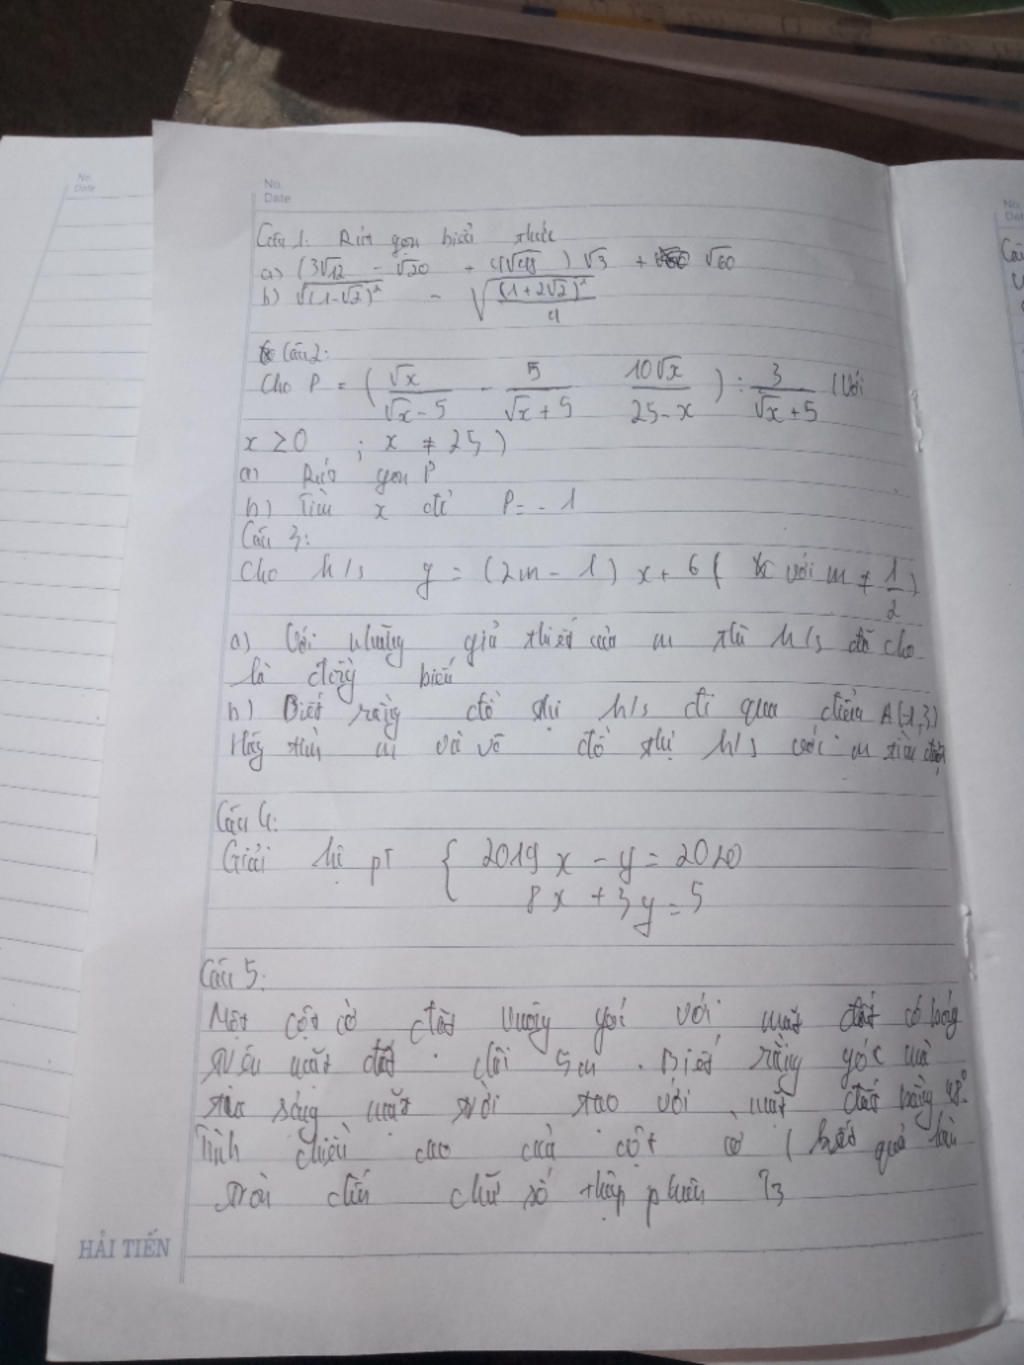 No.
Date
No.
Date
Câu 1: Rút gọn biểu thức
a) (3√12 - √20 + 4√48) √3 + √60
b) √(1-√2)² - √((1+2√2)²/4)
Câu 2:
Cho P = (√x/(√x-5) - 5/(√x+5) 10√x/(25-x)) : 3/(√x+5) (Với
x ≥ 0 ; x ≠ 25)
a) Rút gọn P
b) Tìm x để P = -1
Câu 3:
Cho h/s y = (2m - 1) x + 6 ( với m ≠ 1/2)
a) Với những giá của m thì h/s đã cho
là đồng biến
b) Biết rằng đồ thị h/s đi qua điểm A(-1,3)
Hãy tìm m và vẽ đồ thị h/s với m tìm được
Câu 4:
Giải hệ pT { 2019x - y = 2020
8x + 3y = 5
Câu 5:
Một cột cờ đặt vuông góc với mặt đất có bóng
trên mặt đất dài 5m. Biết rằng góc mà
tia sáng mặt trời tạo với mặt đất bằng 48°.
Tính chiều cao của cột cờ ( kết quả làm
tròn đến chữ số thập phân T3
HẢI TIẾN
No
Date